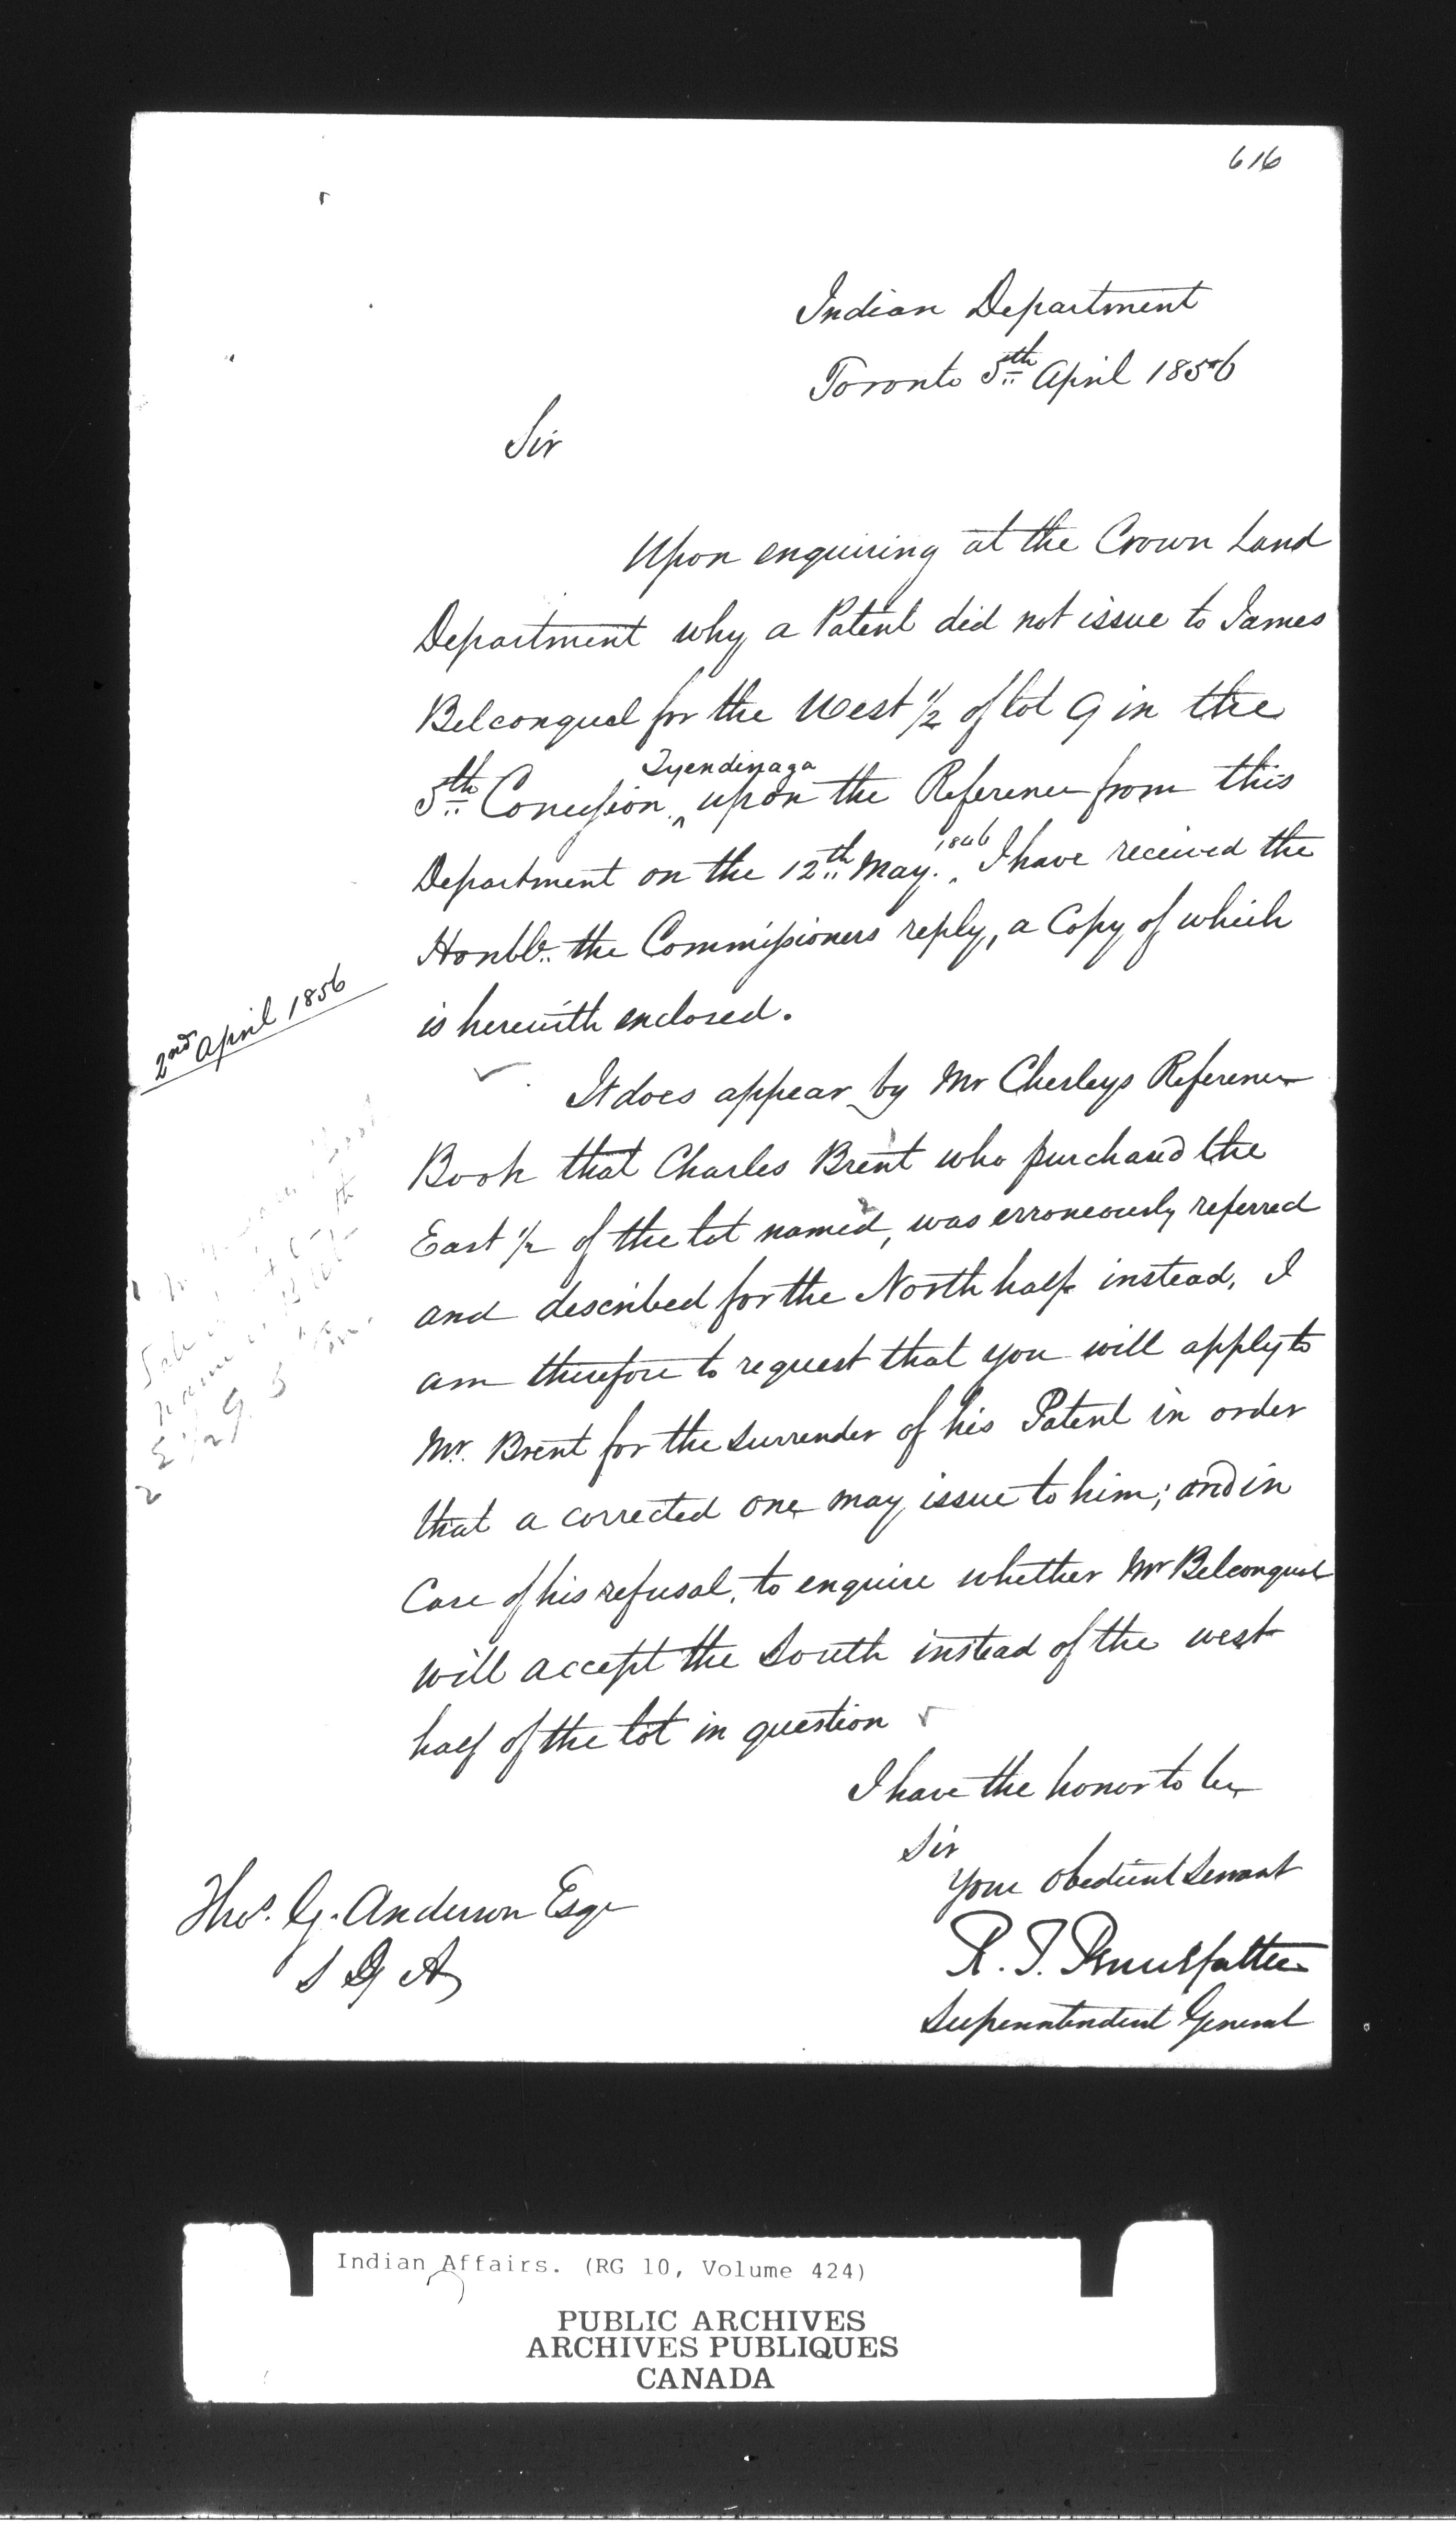 616
Indian Department
Toronto 5th April 1856
Sir
Upon enquiring at the Crown Land
Department why a Patent did not issue to James
Belconqual for the West 1/2 of lot 9 in the
Tyendinaga
5th Concession ^ upon the Reference from this
1846
Department on the 12th May. ^ I have received the
Honble. the Commissioners reply, a Copy of which
is herewith enclosed.
2nd April 1856
It does appear by Mr Chesleys Reference
Book that Charles Brent who purchased the
East 1/2 of the lot named, was erroneously referred
and described for the North half instead, I
am therefore to request that you will apply to
Mr. Brent for the surrender of his Patent in order
that a corrected one may issue to him; and in
Case of his refusal, to enquire whether Mr Belconqual
will accept the South instead of the west
half of the lot in question
E 1/2 9 5
I have the honor to be
Sir
Your obedient servant
R. T. Pennefather
Superintendent General
Thos. G. Anderson Esqr
S I A
Indian Affairs. (RG 10, Volume 424)
PUBLIC ARCHIVES
ARCHIVES PUBLIQUES
CANADA